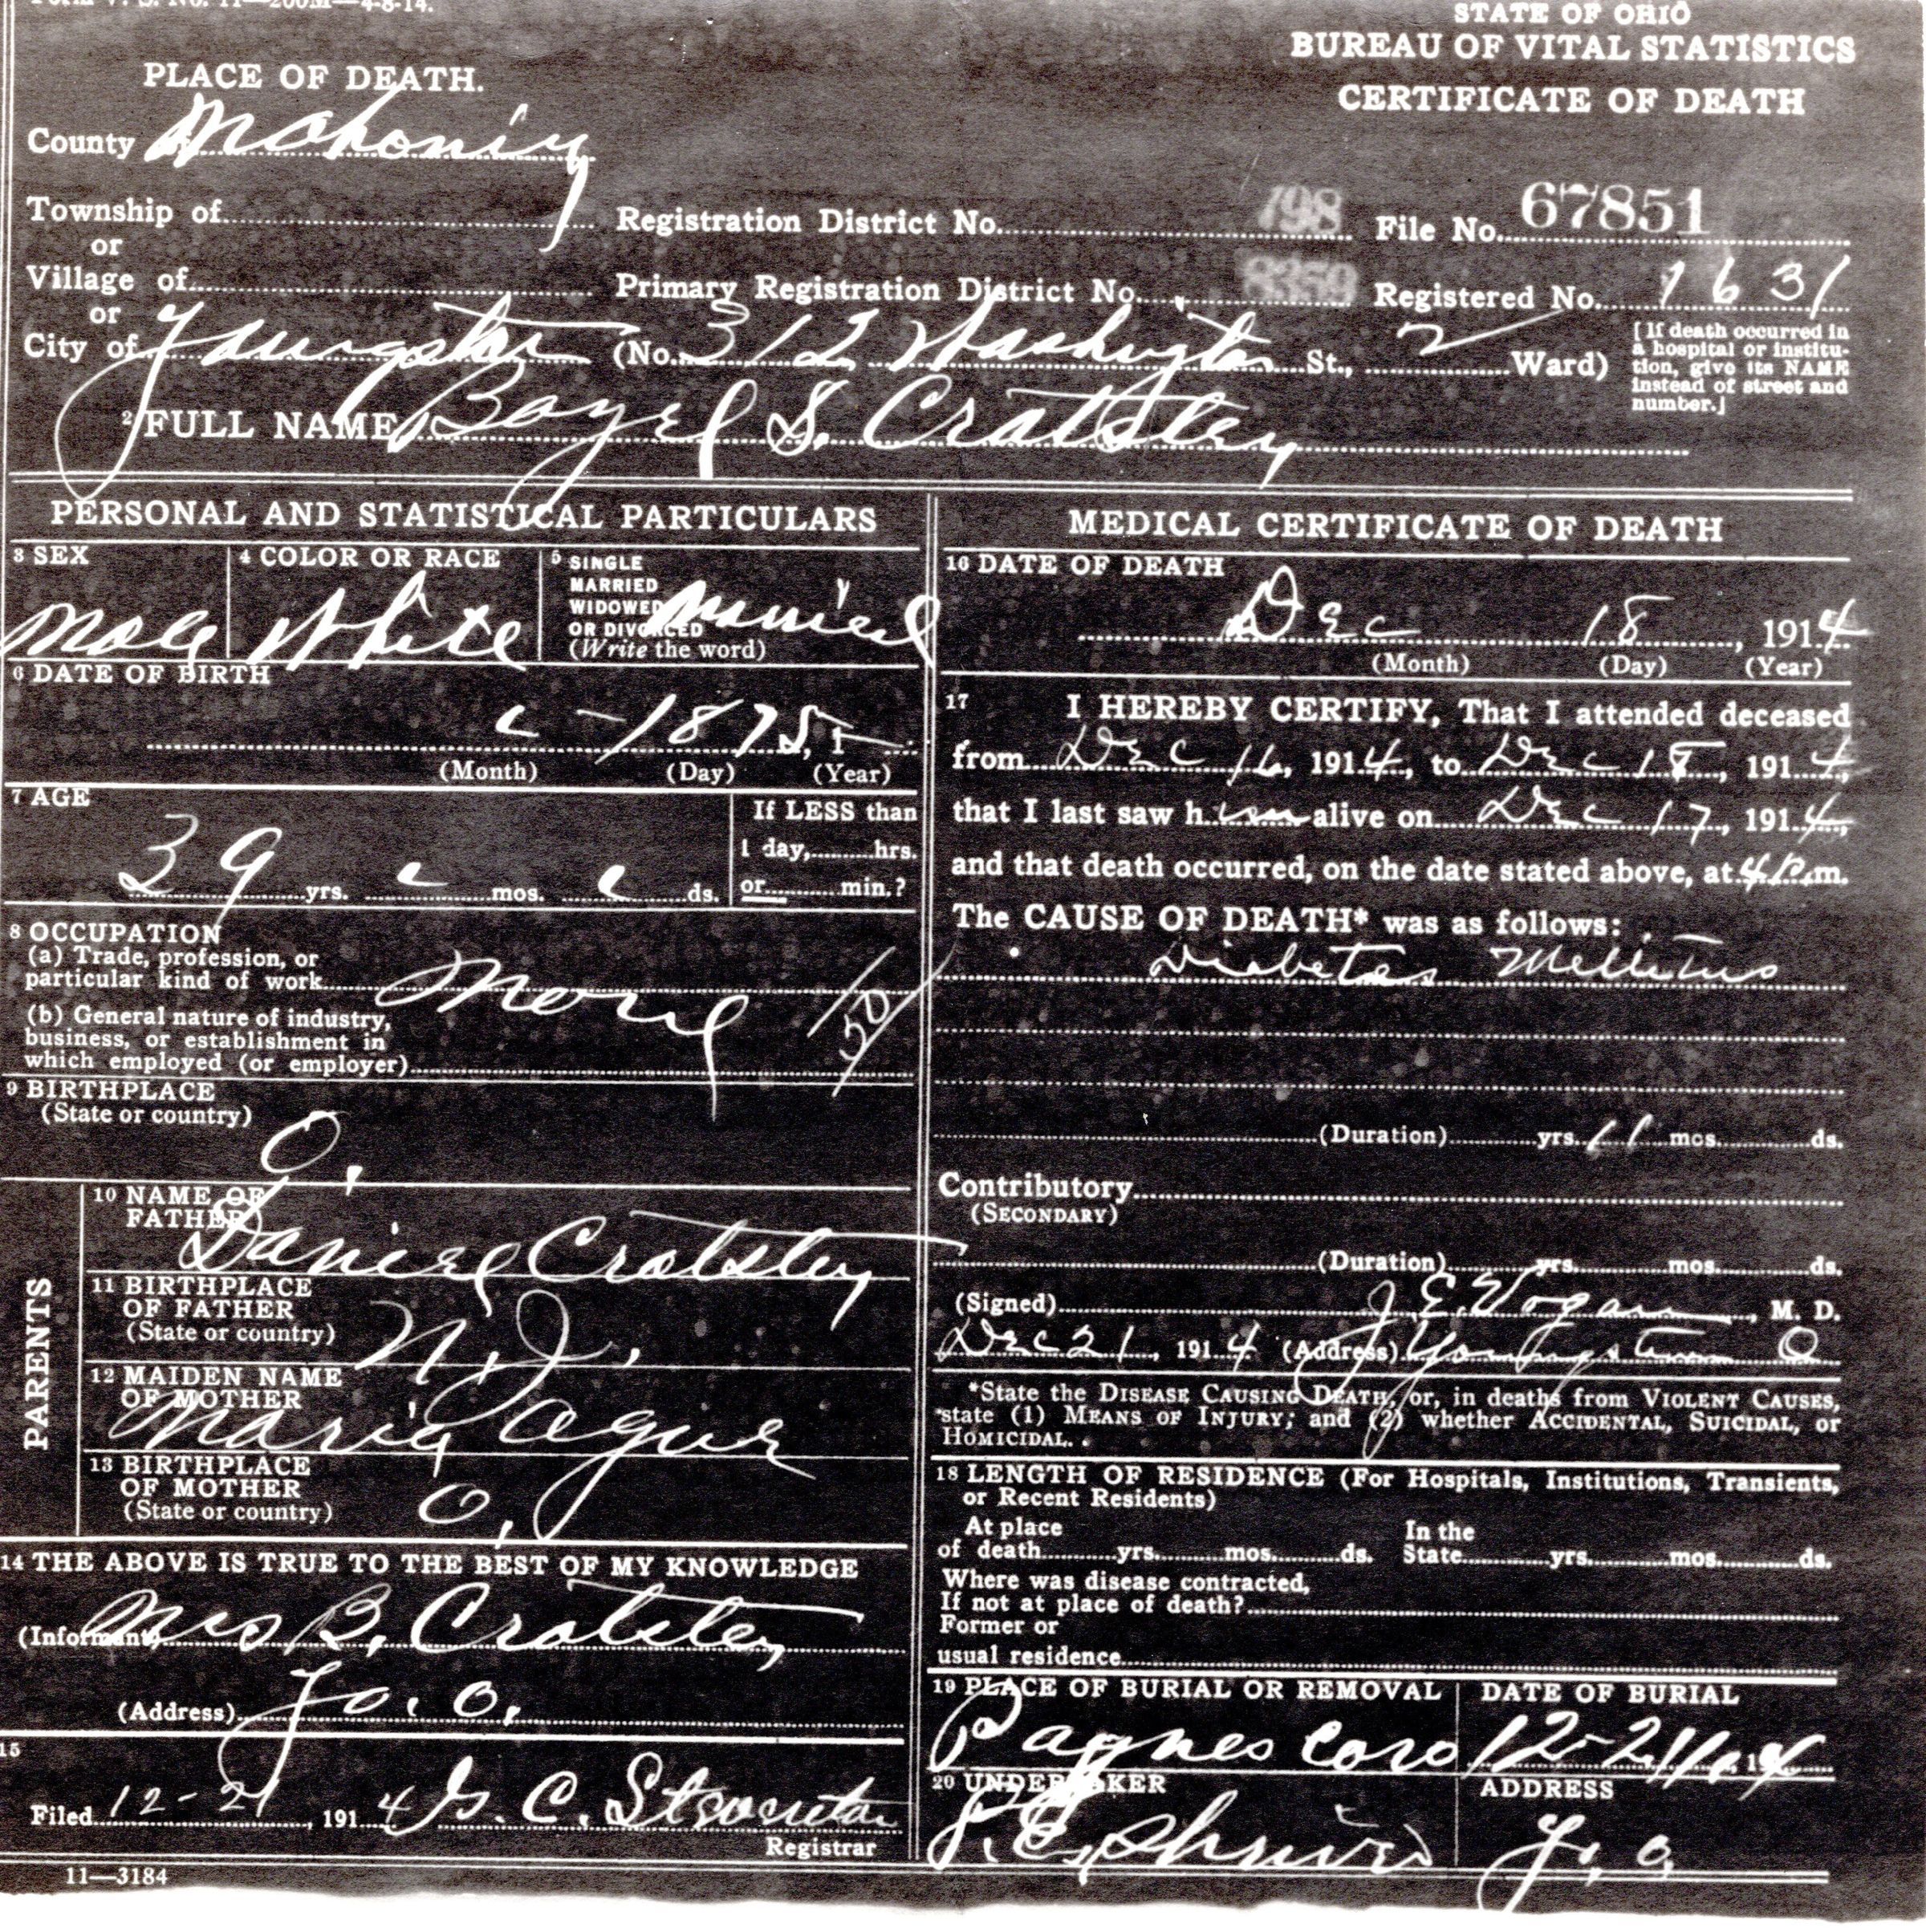 Form V. S. No. 11—200M—4-8-14.
STATE OF OHIO
BUREAU OF VITAL STATISTICS
CERTIFICATE OF DEATH
PLACE OF DEATH.
County of Mahoning
Township of
or
Village of
or
City of Youngstown (No. 312 Washington St., 2 Ward)
Registration District No. 798 File No. 67851
Primary Registration District No. 8359 Registered No. 1631
[If death occurred in
a hospital or institu-
tion, give its NAME
instead of street and
number.]
2 FULL NAME Bazel S. Cratsley
PERSONAL AND STATISTICAL PARTICULARS
3 SEX
Male
4 COLOR OR RACE
White
5 SINGLE
MARRIED
WIDOWED
OR DIVORCED
(Write the word)
Married
6 DATE OF BIRTH
- 1875, 1
(Month) (Day) (Year)
7 AGE
39 yrs. mos. ds.
If LESS than
1 day, hrs.
or min.?
8 OCCUPATION
(a) Trade, profession, or
particular kind of work
(b) General nature of industry,
business, or establishment in
which employed (or employer)
50
9 BIRTHPLACE
(State or country)
O.
PARENTS
10 NAME OF
FATHER
Daniel Cratsley
11 BIRTHPLACE
OF FATHER
(State or country)
N.J.
12 MAIDEN NAME
OF MOTHER
Maria Ague
13 BIRTHPLACE
OF MOTHER
(State or country)
O,
14 THE ABOVE IS TRUE TO THE BEST OF MY KNOWLEDGE
(Informant) Mrs B. Cratsley
(Address) Yo. O.
15
Filed 12-21, 1914
Registrar
11—3184
MEDICAL CERTIFICATE OF DEATH
16 DATE OF DEATH
Dec 18, 1914
(Month) (Day) (Year)
17 I HEREBY CERTIFY, That I attended deceased
from Dec 16, 1914, to Dec 18, 1914,
that I last saw him alive on Dec 17, 1914,
and that death occurred, on the date stated above, at 4 P.m.
The CAUSE OF DEATH* was as follows:
Diabetes Mellitus
(Duration) yrs. 11 mos. ds.
Contributory
(SECONDARY)
(Duration) yrs. mos. ds.
(Signed) J. E. Vogan, M. D.
Dec 21, 1914 (Address) Youngstown O
*State the DISEASE CAUSING DEATH, or, in deaths from VIOLENT CAUSES,
state (1) MEANS OF INJURY; and (2) whether ACCIDENTAL, SUICIDAL, or
HOMICIDAL.
18 LENGTH OF RESIDENCE (For Hospitals, Institutions, Transients,
or Recent Residents)
At place
of death yrs. mos. ds.
In the
State yrs. mos. ds.
Where was disease contracted,
If not at place of death?
Former or
usual residence
19 PLACE OF BURIAL OR REMOVAL
Paynes Cors
DATE OF BURIAL
12-21, 14
20 UNDERTAKER
ADDRESS
Y. O.